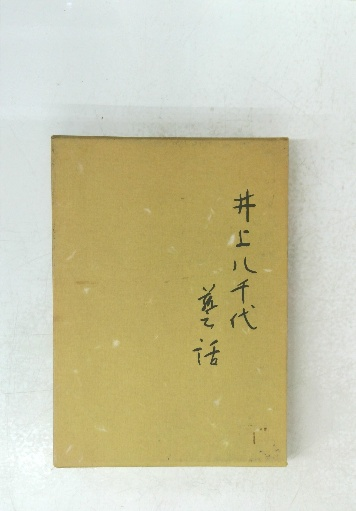 井上八千代
藝話